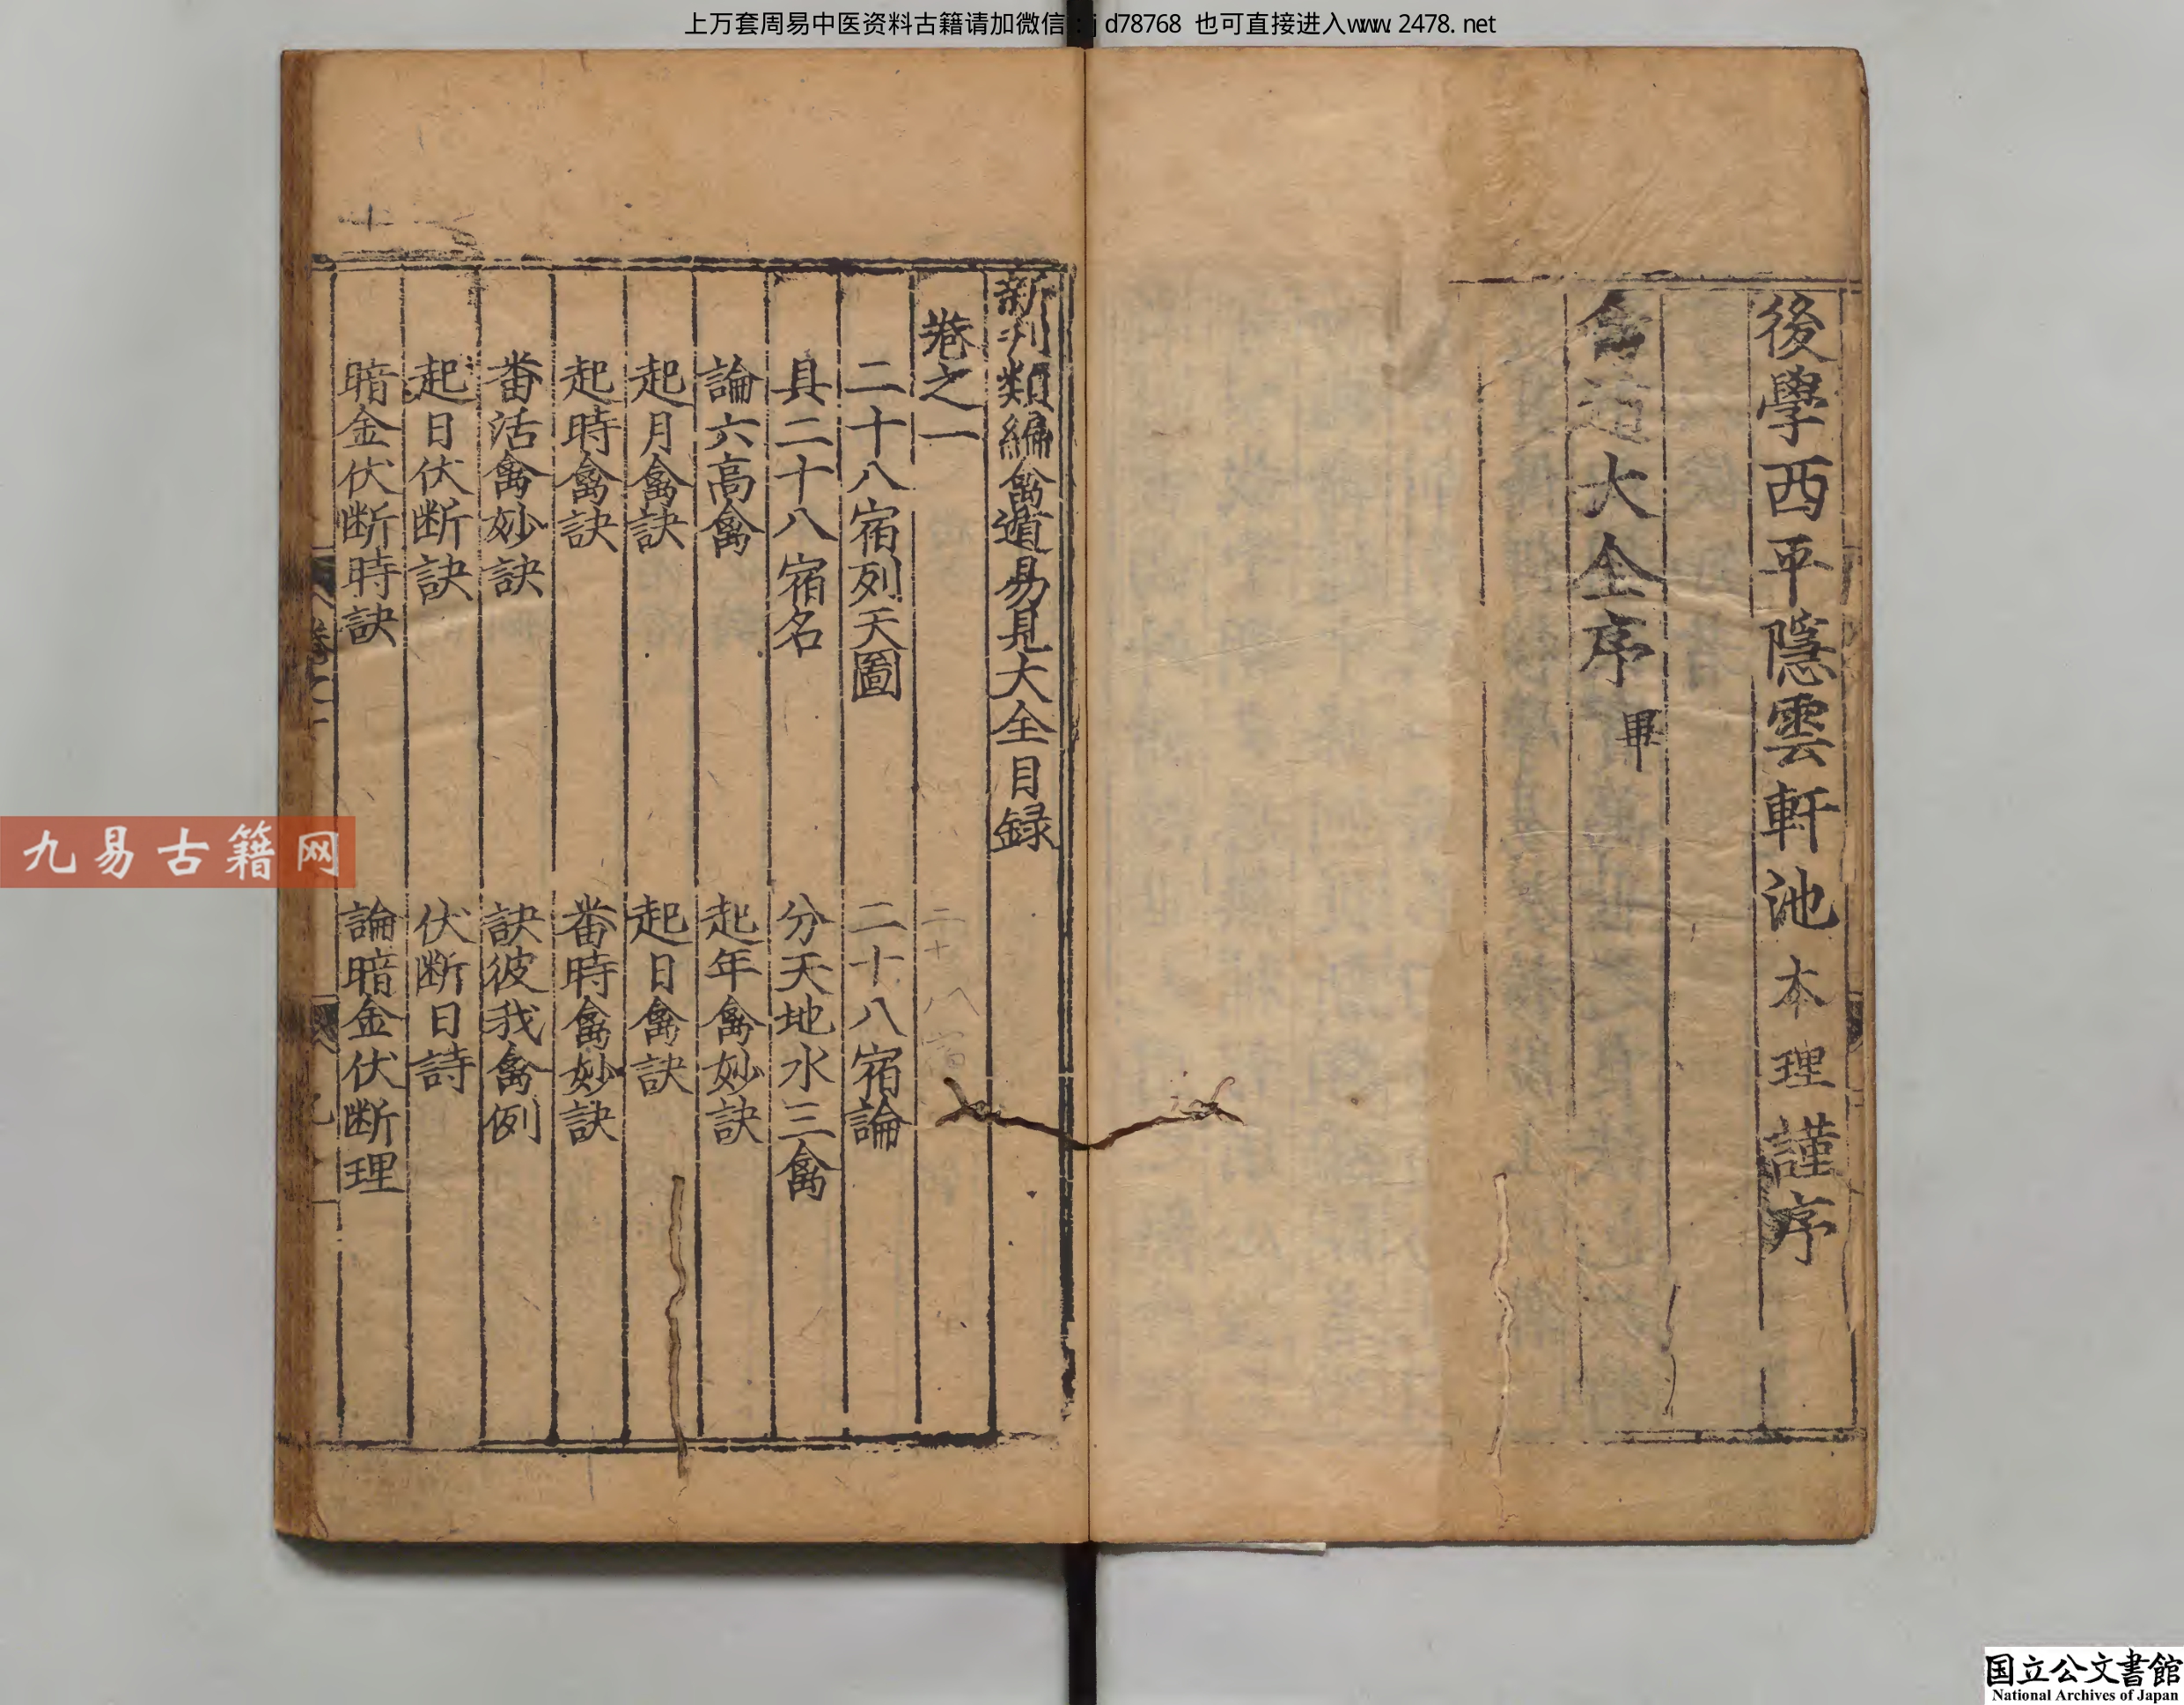 上万套周易中医资料古籍请加微信：jd78768 也可直接进入www.2478.net
後學西平隱雲軒池本理謹序
禽遁大全序畢
新刋類編禽遁易見大全目録
卷之一
二十八宿列天圖 二十八宿論
具二十八宿名 分天地水三禽
論六高禽 起年禽妙訣
起月禽訣 起日禽訣
起時禽訣 畨時禽妙訣
畨活禽妙訣 訣彼我禽例
起日伏断訣 伏断日詩
暗金伏断時訣 論暗金伏断理
九易古籍网
国立公文書館
National Archives of Japan